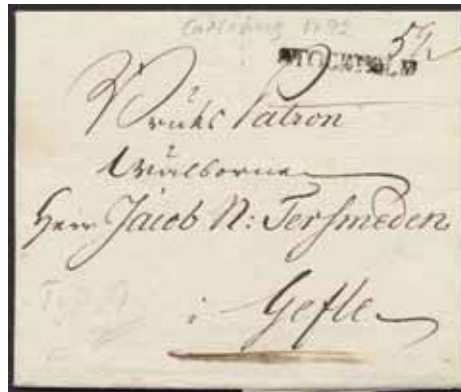 1792
STOCKHOLM
Bruks Patron
Wälborne
Herr Jacob N: Tersmeden
i Gefle